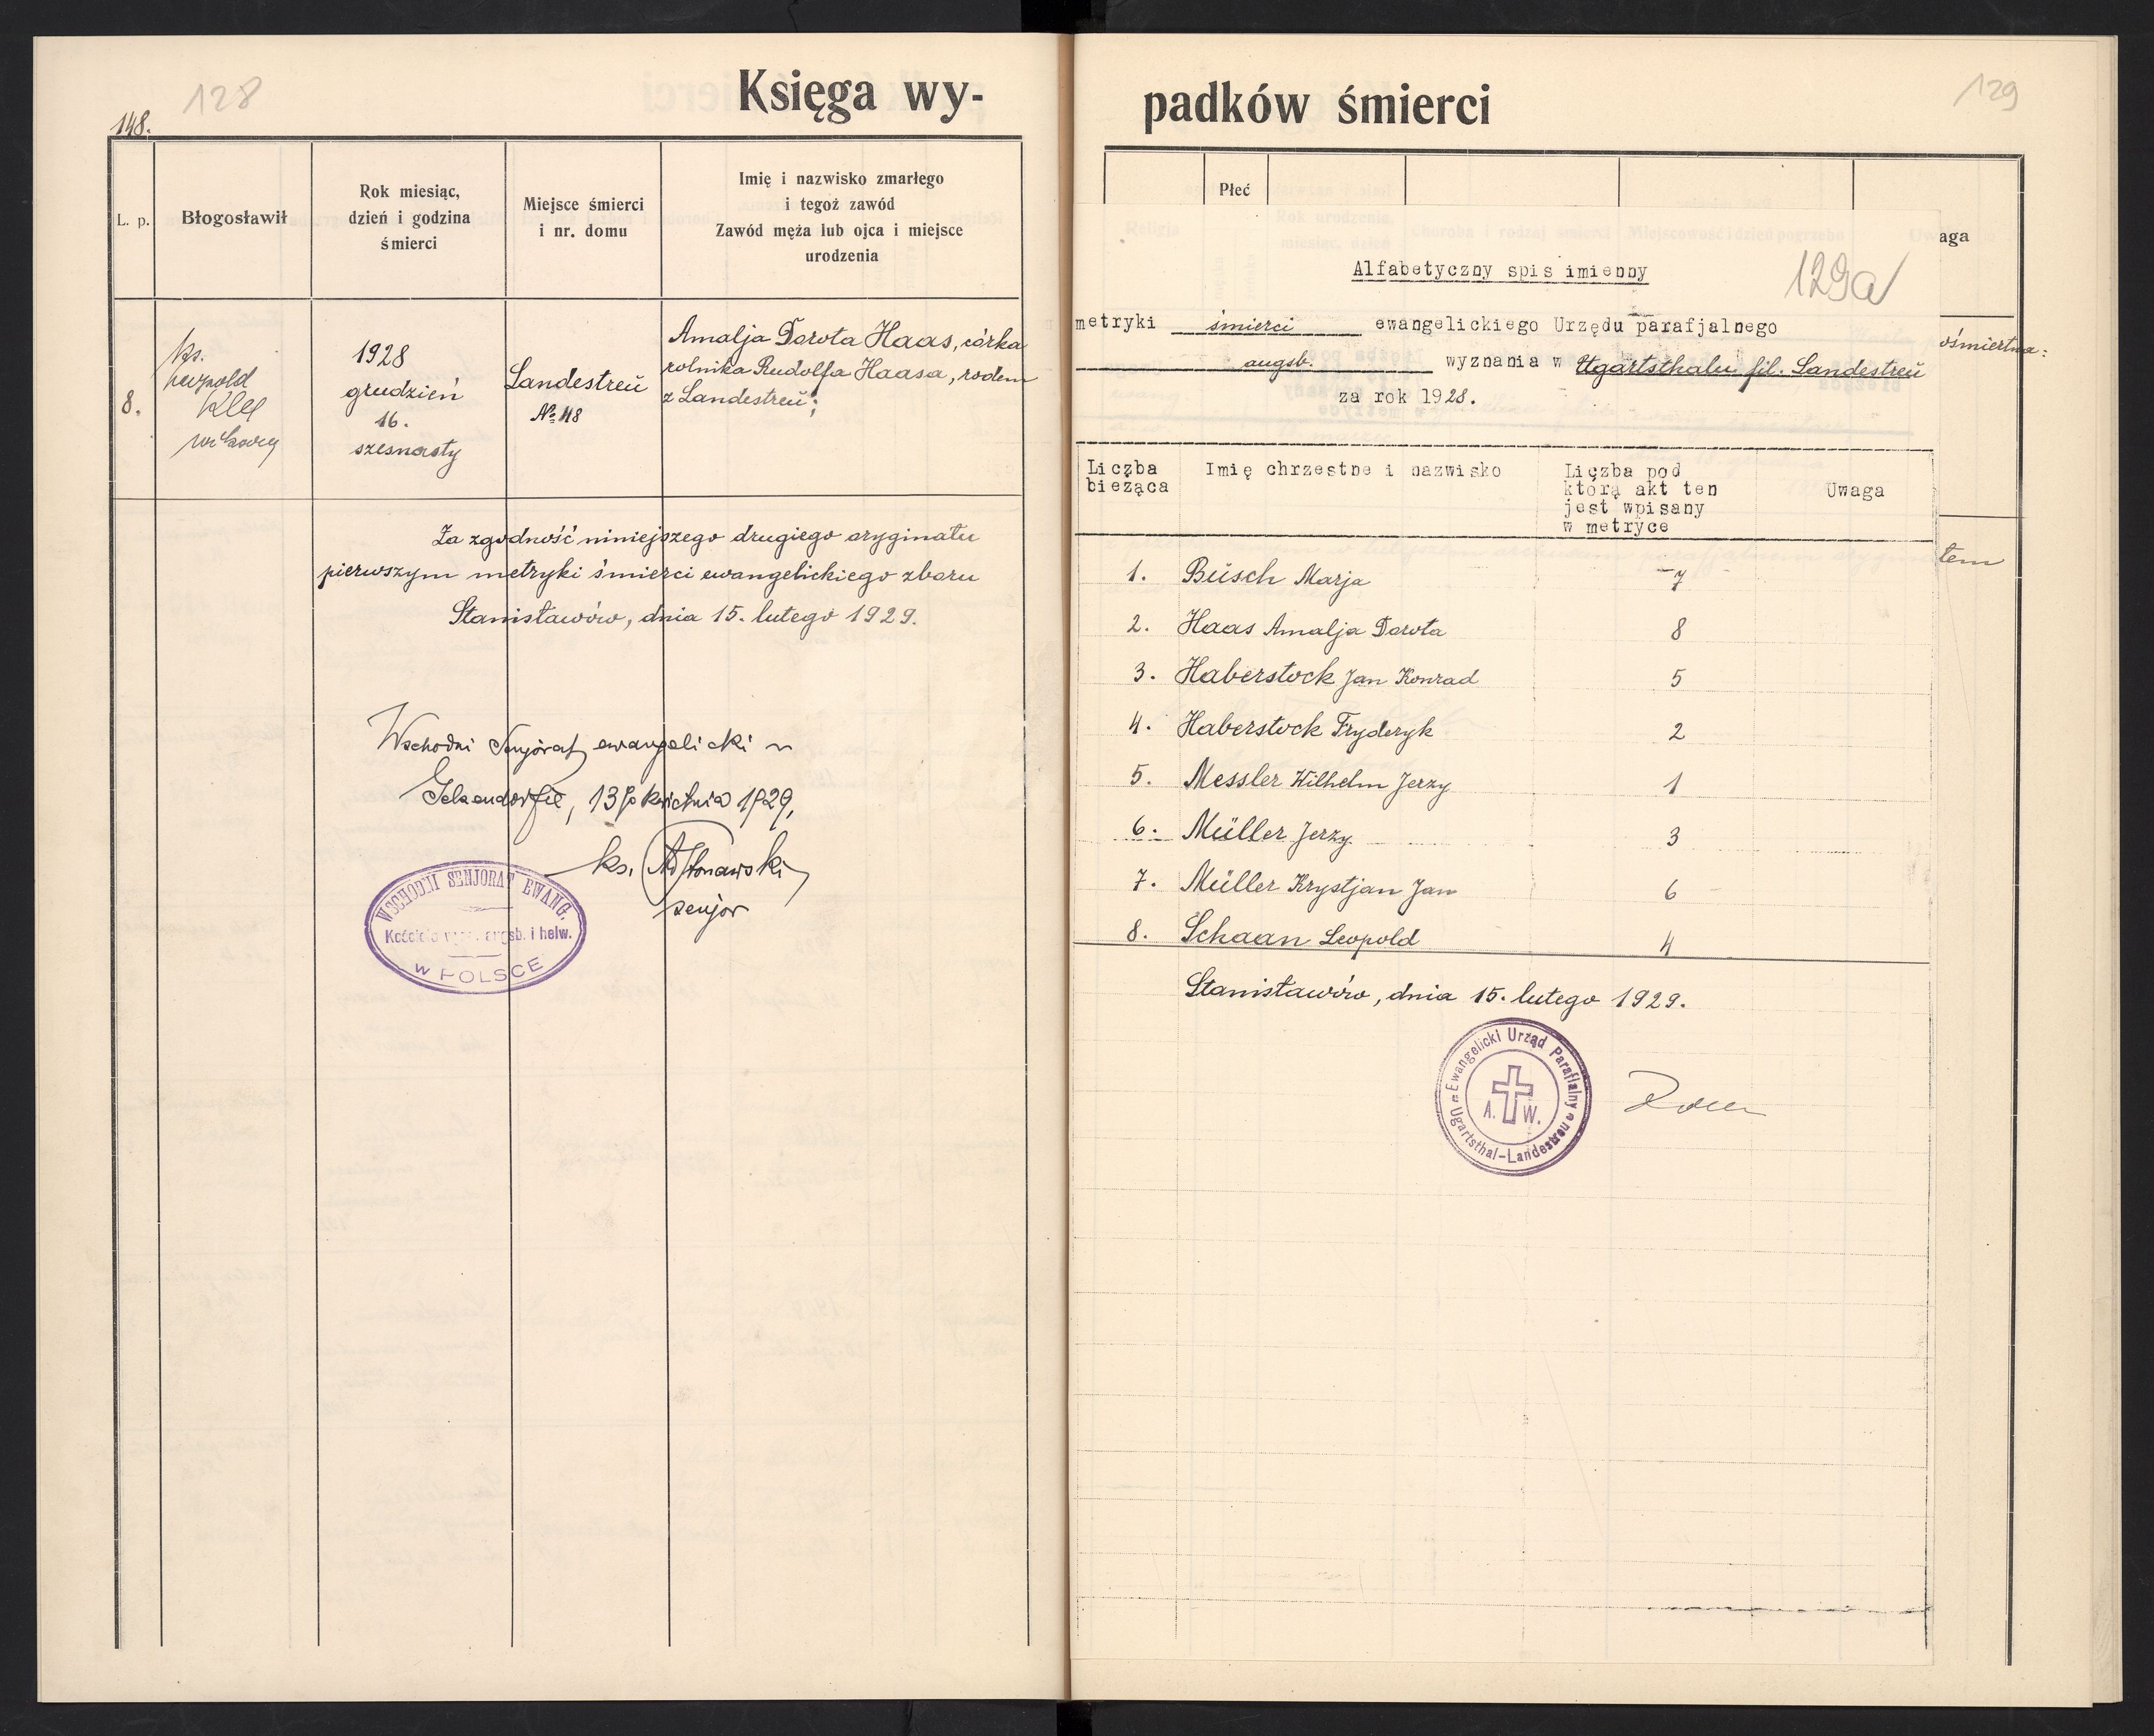 128
148.
Księga wy-
L. p.
Błogosławił
Rok miesiąc,
dzień i godzina
śmierci
Miejsce śmierci
i nr. domu
Imię i nazwisko zmarłego
i tegoż zawód
Zawód męża lub ojca i miejsce
urodzenia
8.
ks.
Leopold
Kleč
wikary
1928
grudzień
16.
szesnasty
Landestreü
№ 48
Amalja Dorota Haas, córka
rolnika Rudolfa Haasa, rodem
z Landestreü;
Za zgodność niniejszego drugiego oryginału
pierwszym metryki śmierci ewangelickiego zboru
Stanisławów, dnia 15. lutego 1929.
Wschodni Senjorat ewangelicki w
Gelsendorfie, 13go kwietnia 1929,
ks.
senjor
WSCHODNI SENJORAT EWANG.
Kościoła wyzn. augsb. i helw.
w POLSCE
129
padków śmierci
Płeć
aga
129a
Alfabetyczny spis imienny
metryki śmierci ewangelickiego Urzędu parafjalnego
augsb. wyznania w Ugartsthalu fil. Landestreü
za rok 1928.
ośmiertna:
tem
Liczba
bieżąca
Imię chrzestne i nazwisko
Liczba pod
którą akt ten
jest wpisany
w metryce
Uwaga
1. Büsch Marja 7
2. Haas Amalja Dorota 8
3. Haberstock Jan Konrad 5
4. Haberstock Fryderyk 2
5. Messler Wilhelm Jerzy 1
6. Müller Jerzy 3
7. Müller Krystjan Jan 6
8. Schaan Leopold 4
Stanisławów, dnia 15. lutego 1929.
Ewangelicki Urząd Parafialny
A. W.
Ugartsthal-Landestreu